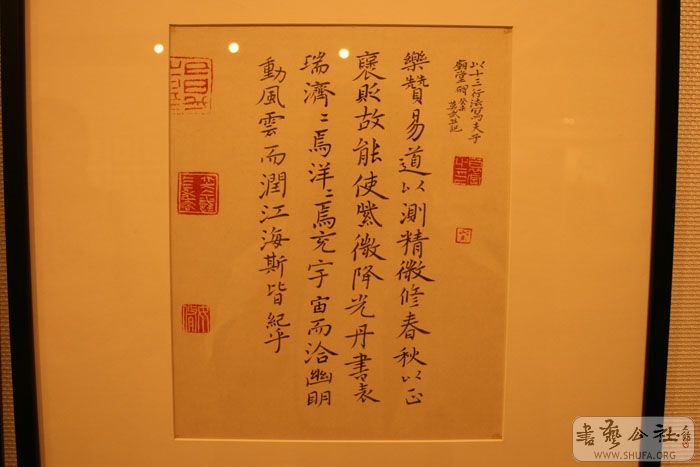 以十三行法寫夫子
廟堂碑
樂贊易道以測精微修春秋以正
褒貶故能使紫微降光丹書表
瑞濟〻焉洋〻焉充宇宙而洽幽明
動風雲而潤江海斯皆紀乎
書藝公社
WWW.SHUFA.ORG